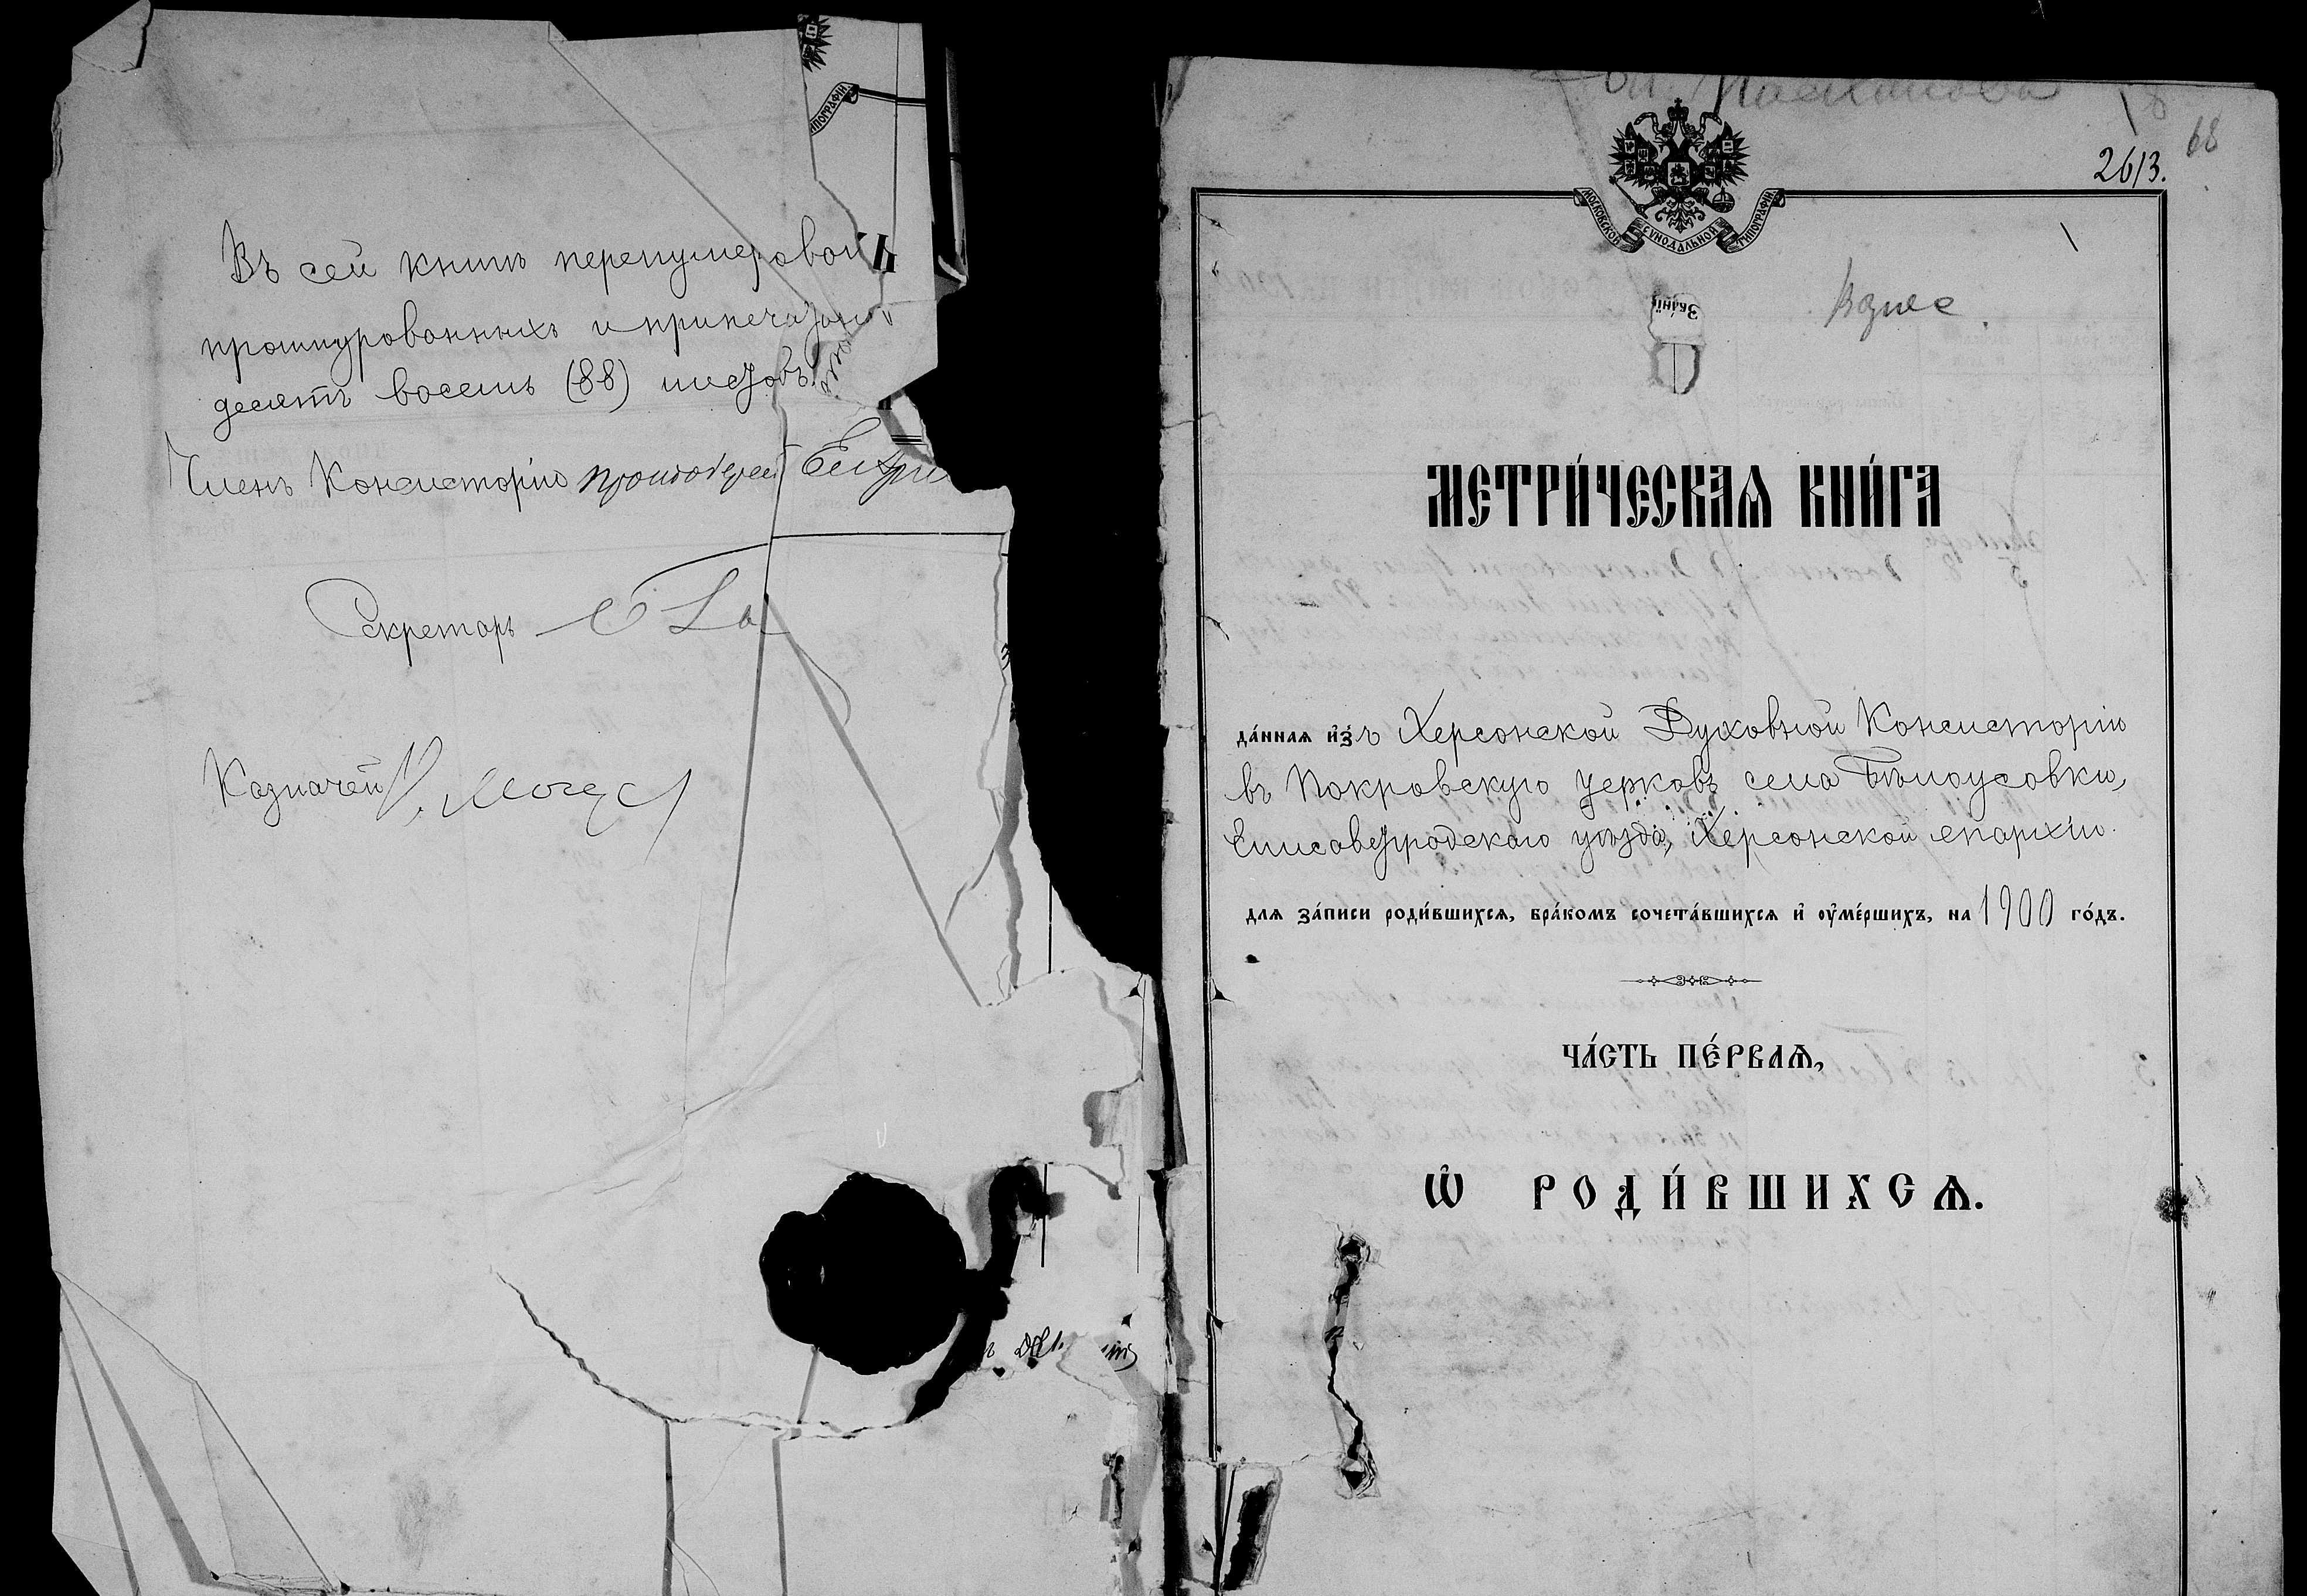 Въ сей книгѣ перенумерован
прошнурованныхъ и припечатан
десятъ восемь (88) листовъ
Членъ Консисторіи протоіерей
Секретарь
Казначей
68
2613.
МОСКОВСКОЙ СѴНОДАЛЬНОЙ ТИПОГРАФІИ
МЕТРИ́ЧЕСКАѦ КНИ́ГА
да́нная и҆з̾ъ Херсонской Духовной Консисторіи
въ Покровскую церковь села Бѣлоусовки,
Елисаветградскаго уѣзда, Херсонской епархіи.
длѧ за́писи роди́вшихсѧ, бра́комъ сочета́вшихсѧ и҆ ᲂу҆ме́ршихъ, на 1900 го́дъ.
ЧА́СТЬ ПЕ́РВАѦ,
Ѡ҆ РОДИ́ВШИХСѦ.